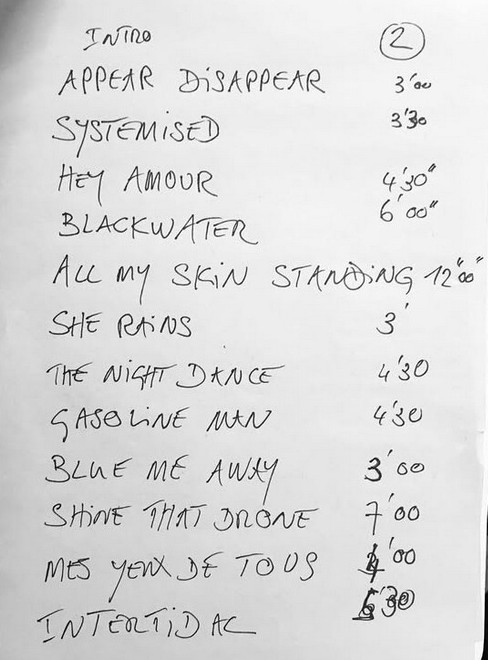 INTRO 2
APPEAR DISAPPEAR 3'00
SYSTEMISED 3'30
HEY AMOUR 4'30"
BLACKWATER 6'00"
ALL MY SKIN STANDING 12"00"
SHE RAINS 3'
THE NIGHT DANCE 4'30
GASOLINE MAN 4'30
BLUE ME AWAY 3'00
SHINE THAT DRONE 7'00
MES YEUX DE TOUS '00
INTERTIDAL 30